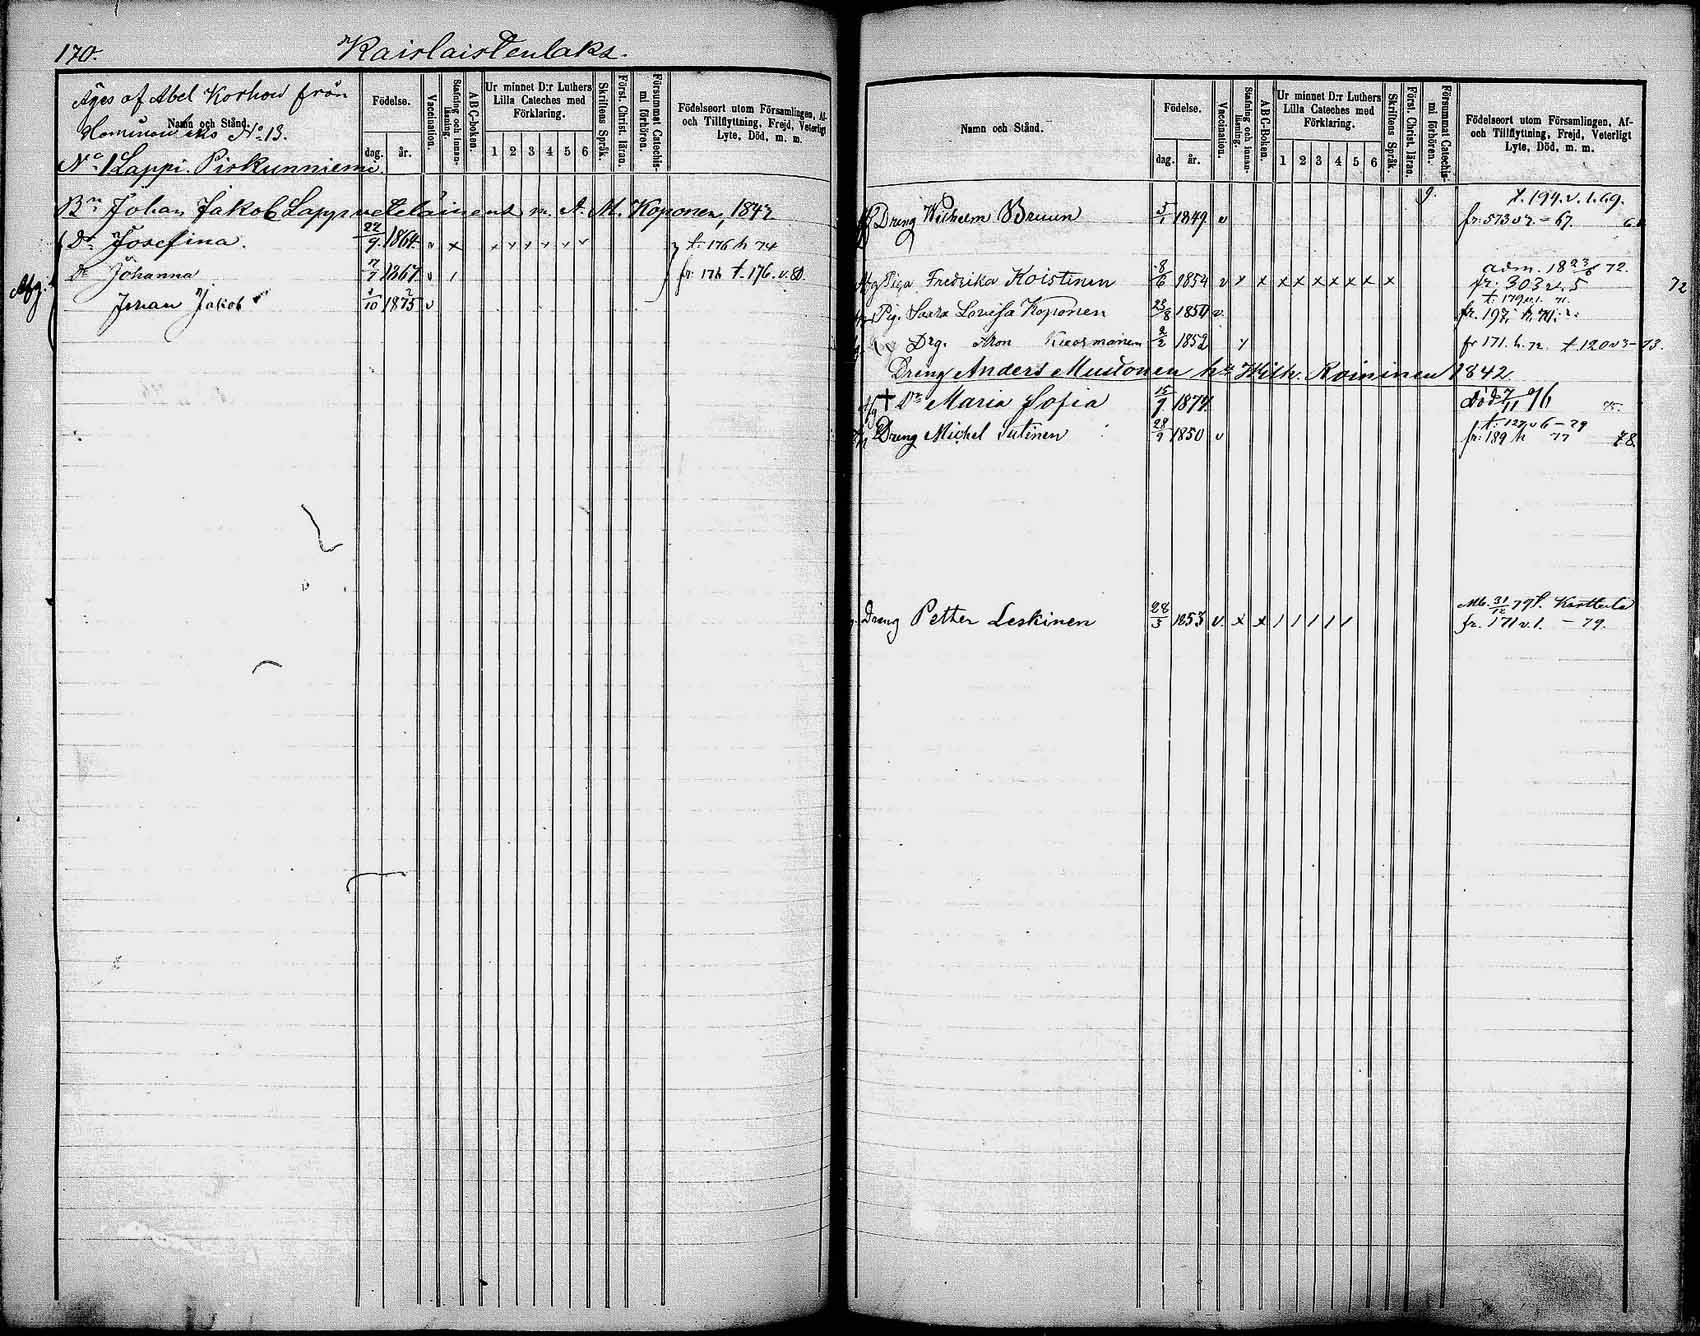 170.
Kaislaistenlaks.
Äges af Abel Korhon från
Namn och Stånd.
No 13.
No 1 Lappi. Pirkunniemi
Födelse.
dag. år.
Vaccination.
Stafning och innanläsning.
ABC-boken.
Ur minnet D:r Luthers Lilla Cateches med Förklaring.
1 2 3 4 5 6
Skriftens Språk.
Först. Christ. läran.
Försummat Catechismi förhören.
Födelseort utom Församlingen, Af- och Tillflyttning, Frejd, Veterligt Lyte, Död, m. m.
Bn Johan Jakob Lappveteläinens m. A. M. Koponen, 1847
Dr Josefina. 22/9 1864 v x x x x x x x t. 176 h 74
Afg. Dr Johanna 7/7 1867 v / fr. 176 t. 176. v. 80.
Johan Jakob 2/10 1875 v
Namn och Stånd.
Födelse.
dag. år.
Vaccination.
Stafning och innanläsning.
ABC-Boken.
Ur minnet D:r Luthers Lilla Cateches med Förklaring.
1 2 3 4 5 6
Skriftens Språk.
Först. Christ. läran.
Försummat Catechismi förhören.
Födelseort utom Församlingen, Af- och Tillflyttning, Frejd, Veterligt Lyte, Död, m. m.
t. 194. v. 1. 69.
Dreng Wilhelm Bruun 5/1 1849. v fr. 573 v 2 - 67.
adm. 18 23/6 72.
Afg Piga Fredrika Koistinen 8/6 1854 v x x x x x x x x x fr. 303 v. 5 72
t. 179 v. 1. 71.
Pig. Saara Lovisa Koponen 23/8 1850 v. fr. 197. h. 70.
Drg. Aron Kuosmanen 2/2 1852 x fr 171. h. 72 t. 120 v 3 - 73.
Dreng Anders Mustonen hu Wilh. Roininen 1842
Afg + Dr Maria Sofia 15/9 1874. död 7/11 76 75.
t. 127 v 6 - 79
Dreng Michel Sutinen 28/9 1850 v fr. 189 h 77 78
Mb. 31/12 79 t. Karttula
Dreng Petter Leskinen 28/3 1853 v. x x / / / / / fr. 171 v. 1. - 79.